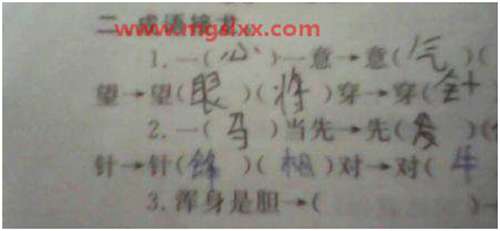 二 成语接龙
www.mgslxx.com
1.一(心)一意→意(气)(
望→望(眼)(将)穿→穿(针
2.一(马)当先→先(发)(
针→针(锋)(相)对→对(牛
3.浑身是胆→(          )